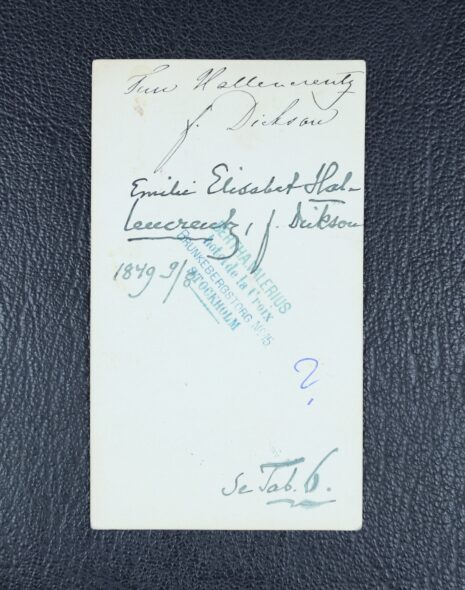 Fru Hallencreutz
f. Dickson
Emilie Elisabet Hal-
lencreutz, f. Dickson
1849 9/8
BERTHA VALERIUS
Phot. de la Croix
BRUNKEBERGSTORG No 15
STOCKHOLM
?
Se Tab. 6.